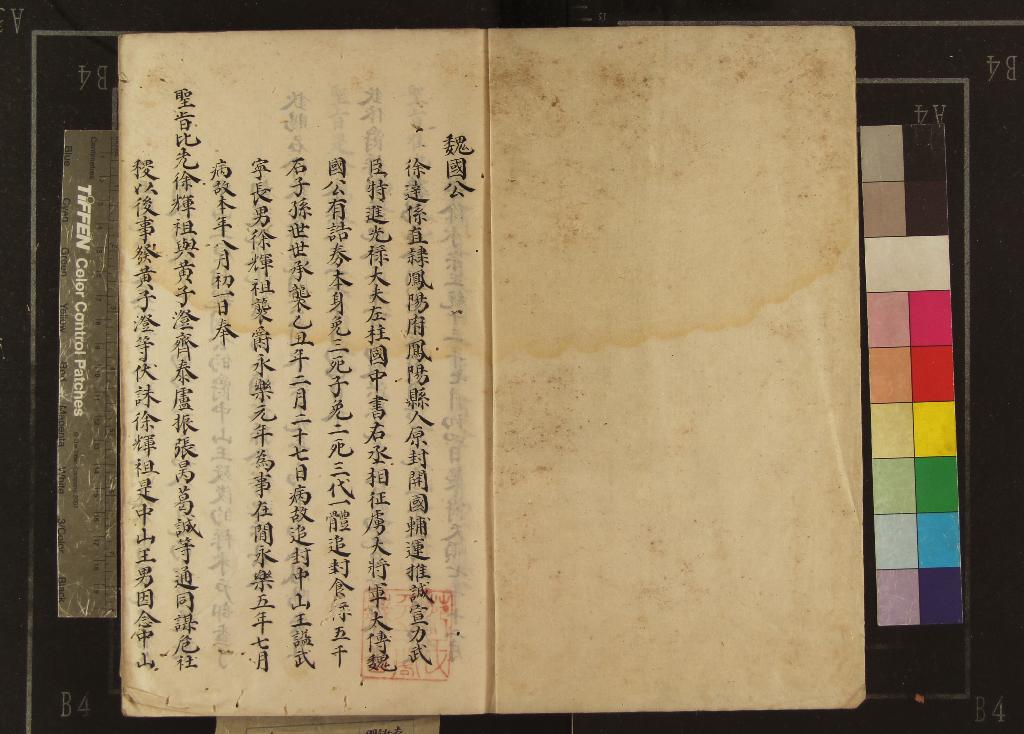 魏國公
徐達係直隸鳳陽府鳳陽縣人原封開國輔運推誠宣力武
臣特進光祿大夫左柱國中書右丞相征虜大將軍太傅魏
國公有誥券本身免三死子免二死三代一體追封食祿五千
石子孫世世承襲乙丑年二月二十七日病故追封中山王謚武
寧長男徐輝祖襲爵永樂元年為事在閒永樂五年七月
病故本年八月初一日奉
聖旨比先徐輝祖與黃子澄齊泰盧振張昺葛誠等通同謀危社
稷以後事發黃子澄等伏誅徐輝祖是中山王男因念中山
TIFFEN Color Control Patches
Centimetres
Blue
Cyan
Green
Yellow
Red
Magenta
White
3/Color
Black
B4
B4
A4
B4
B4